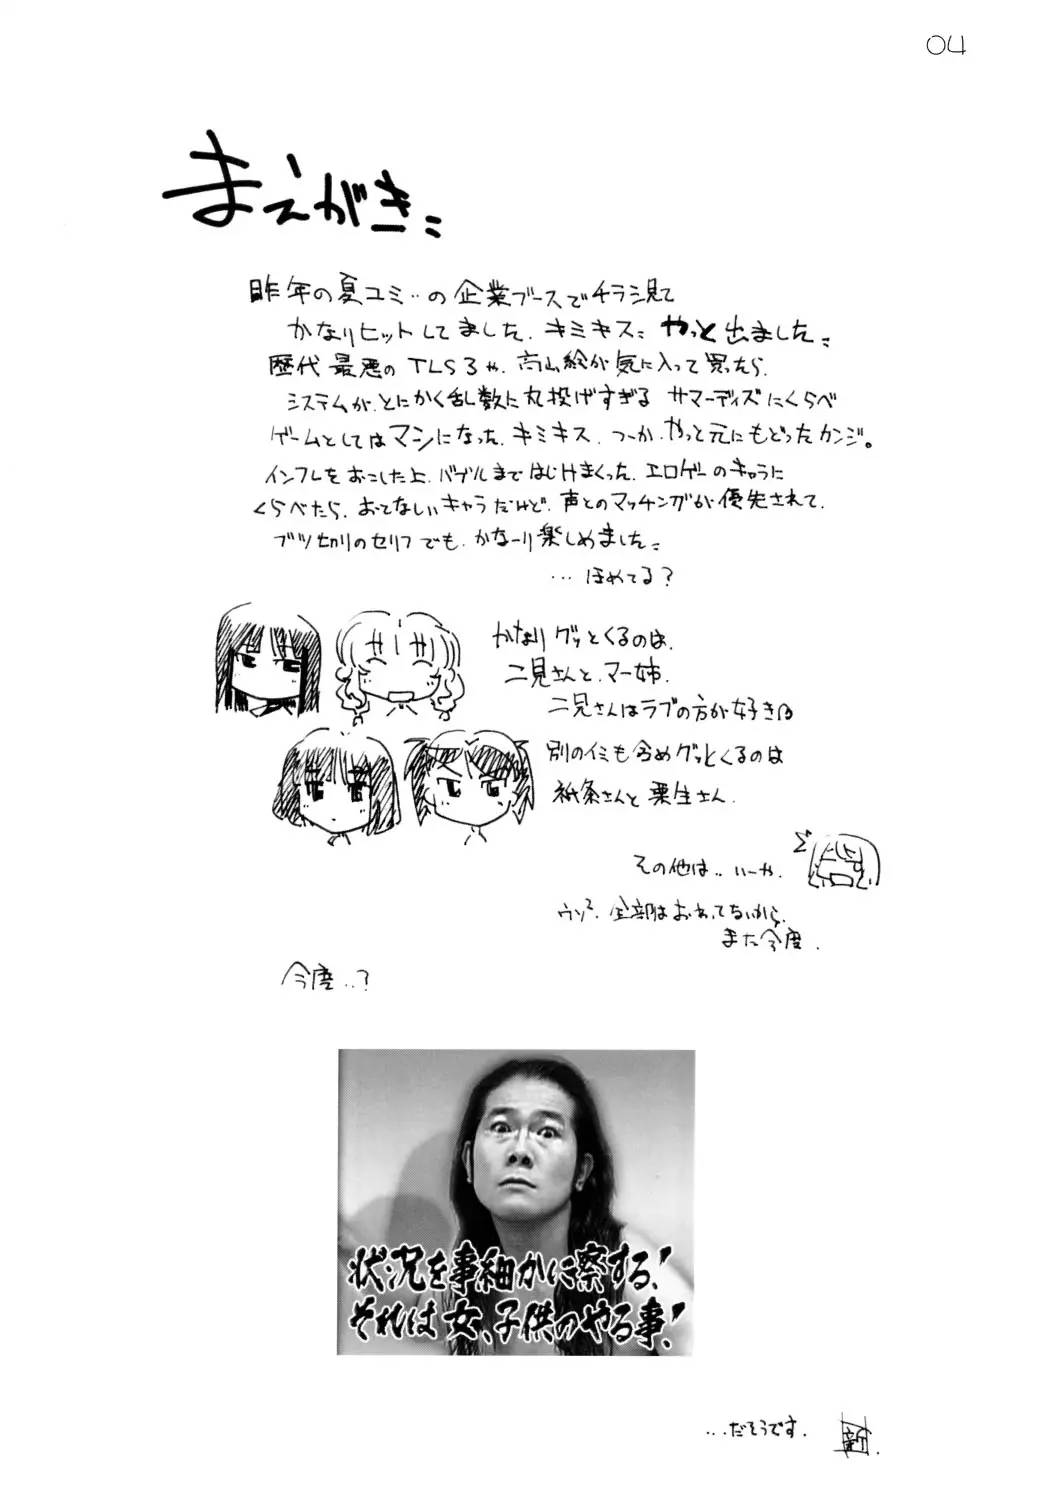 04
まえがき
昨年の夏コミ‥の企業ブースでチラシ見て
かなりヒットしてました、キミキス、やっと出ました
歴代最悪のTLS3や、高山絵が気に入って買ったら、
システムが、とにかく乱数に丸投げすぎる サマーデイズにくらべ
ゲームとしてはマシになった、キミキス、つーか、やっと元にもどったカンジ。
インフレをおこした上、バブルまではじけまくった、エロゲーのキャラに
くらべたら、おとなしいキャラだけど、声とのマッチングが優先されて、
ブツ切りのセリフでも、かなーり楽しめました
…ほめてる?
かなりグッとくるのは、
二見さんと、マー姉、
二見さんはラブの方が好き
別のイミも含めグッとくるのは
祇条さんと栗生さん、
その他は‥いーや、
ウソ²、全部はおわってないから、
また今度、
今度‥?
状況を事細かに察する!
それは女、子供のやる事!
…だそうです、
新